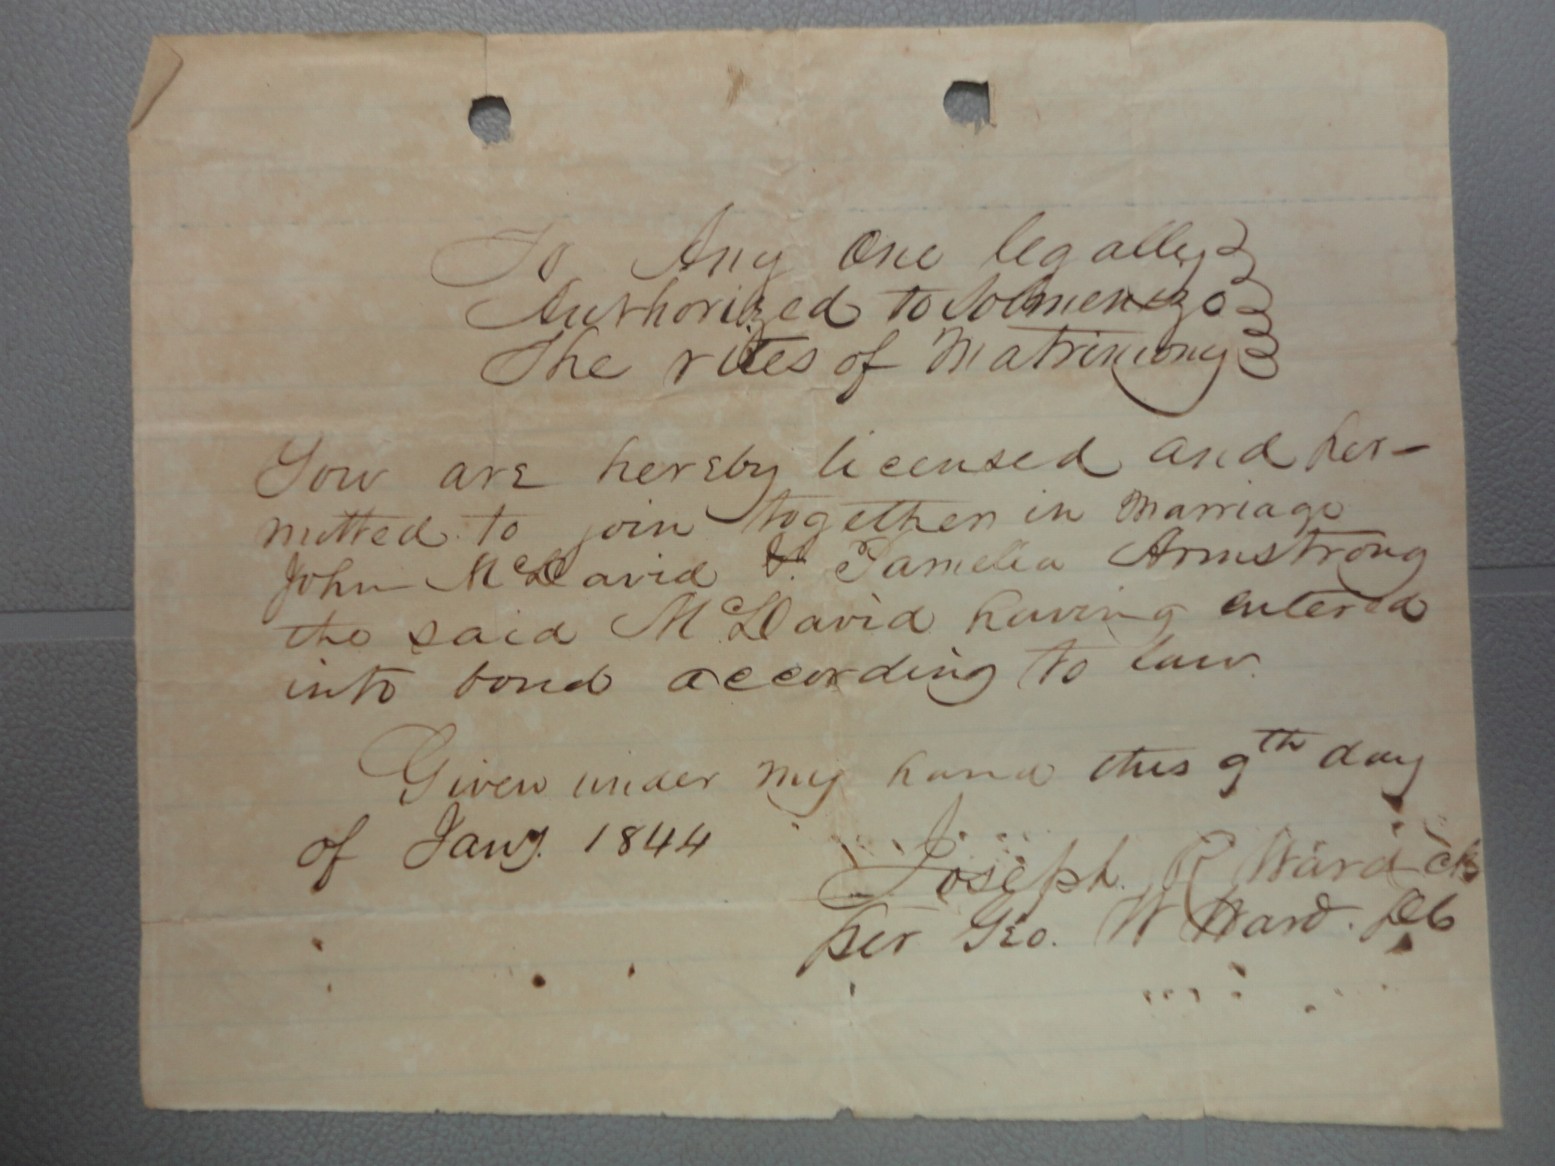 To Any One legally
Authorized to Solmenize
The rites of Matrimony
You are hereby licensed and per-
mitted to join together in Marriage
John McDavid & Pamelia Armstrong
the said McDavid having entered
into bond according to law.
Given under my hand this 9th day
of Jany. 1844
Joseph R Ward Clk
per Geo. W Ward. DC